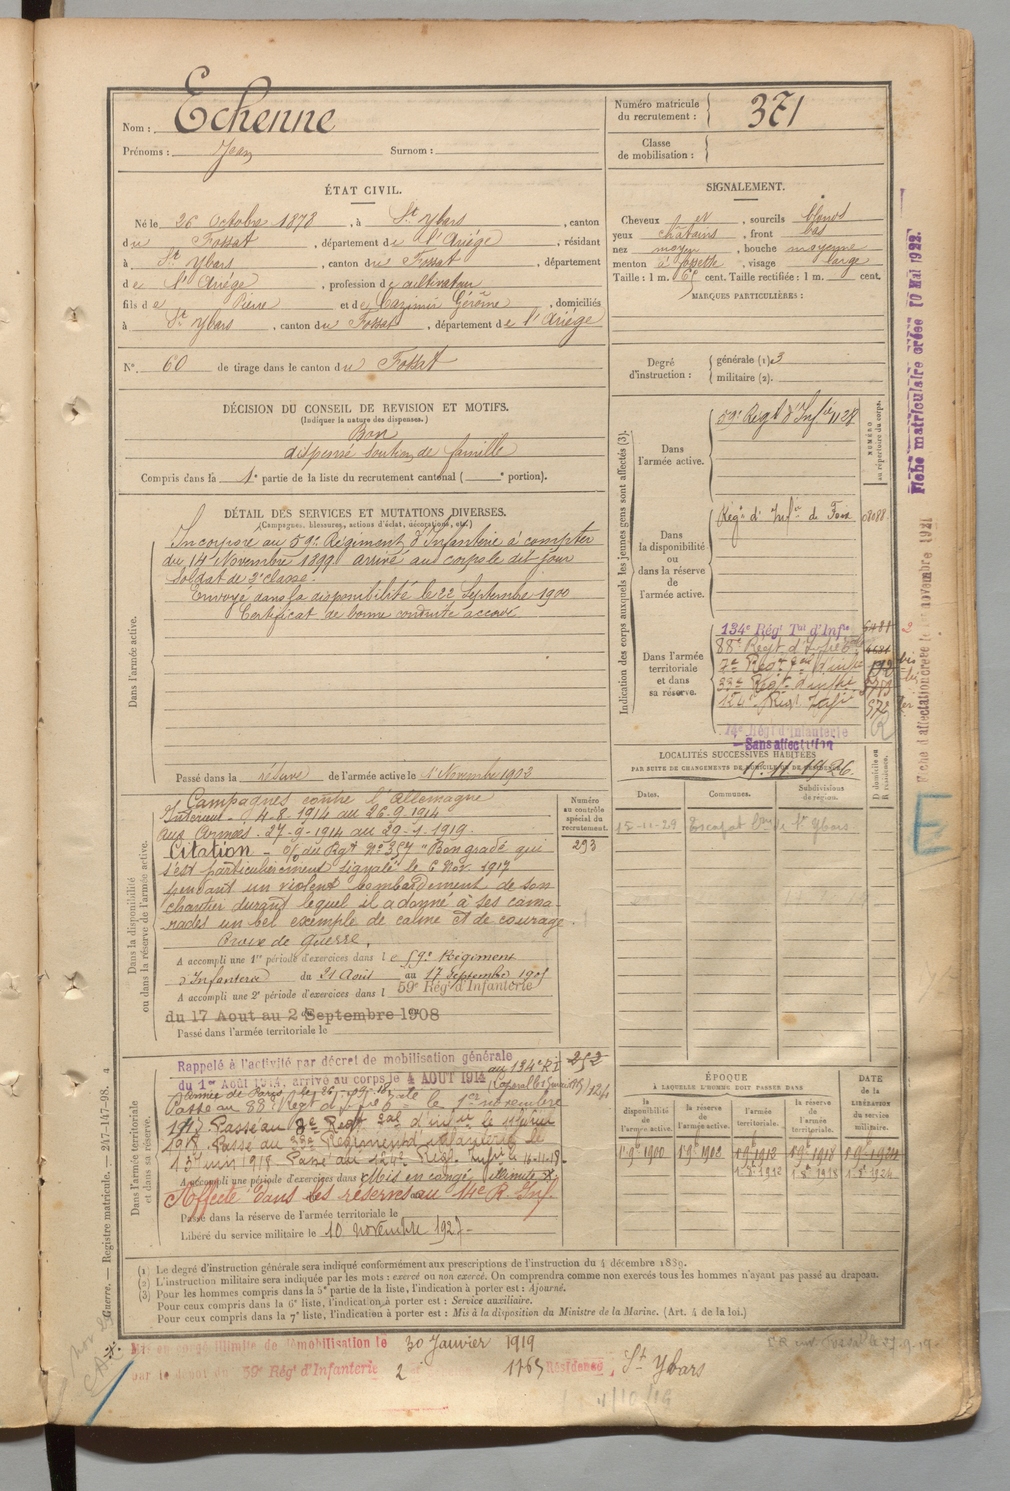 Nom : Echenne
Prénoms : Jean Surnom :
Numéro matricule du recrutement : 371
Classe de mobilisation :
ÉTAT CIVIL.
Né le 26 Octobre 1878, à St Ybars, canton
du Fossat, département de l'Ariége, résidant
à St Ybars, canton du Fossat, département
de l'Ariége, profession de cultivateur
fils de Pierre et de Cazimie Gérome, domiciliés
à St Ybars, canton du Fossat, département de l'Ariége
N° 60 de tirage dans le canton du Fossat
SIGNALEMENT.
Cheveux et, sourcils blonds
yeux châtains, front bas
nez moyen, bouche moyenne
menton à fossette, visage large
Taille : 1 m. 65 cent. Taille rectifiée : 1 m. cent.
MARQUES PARTICULIÈRES :
Degré d'instruction : générale (1). 3
militaire (2).
DÉCISION DU CONSEIL DE REVISION ET MOTIFS.
(Indiquer la nature des dispenses.)
Bon
dispensé soutien de famille
Compris dans la 1e partie de la liste du recrutement cantonal ( e portion).
DÉTAIL DES SERVICES ET MUTATIONS DIVERSES.
(Campagnes, blessures, actions d'éclat, décorations, etc.)
Dans l'armée active.
Incorporé au 59e Régiment d'Infanterie à compter
du 14 Novembre 1899 arrivé au corps le dit jour
Soldat de 2e classe.
Envoyé dans la disponibilité le 22 Septembre 1900
Certificat de bonne conduite accordé
Passé dans la réserve de l'armée active le 1 Novembre 1902
Dans la disponibilité ou dans la réserve de l'armée active.
Campagnes contre l'Allemagne
Intérieur - 4-8-1914 au 26-9-1914
aux Armées - 27-9-1914 au 29-1-1919.
Citation - o/ du Régt N° 357 "Bon gradé qui
s'est particulièrement signalé le 6 Nov. 1917
pendant un violent bombardement de son
chantier durant lequel il a donné à ses cama-
rades un bel exemple de calme et de courage.
Croix de Guerre.
A accompli une 1re période d'exercices dans le 59e Régiment
d'Infanterie du 21 Août au 17 Septembre 1905
A accompli une 2e période d'exercices dans l 59e Régt d'Infanterie
du 17 Aout au 2 Septembre 1908
Passé dans l'armée territoriale le
Numéro au contrôle spécial du recrutement.
293
Dans l'armée territoriale et dans sa réserve.
Rappelé à l'activité par décret de mobilisation générale
du 1er Août 1914, arrivé au corps le 4 AOUT 1914 au 134e R I
Passé au 88e Régt d' le 1er novembre
1917 Passé au Régt d'infie le
1918. Passé au 33e Régiment d'infanterie le
13 juin 1918 Passé au 124e Régt Infie le 16-11-18.
A accompli une période d'exercices dans Mis en congé illimité
Affecté dans les réserves au 14e R. Inf.
Passé dans la réserve de l'armée territoriale le
Libéré du service militaire le 10 novembre 1927
252
Indication des corps auxquels les jeunes gens sont affectés (3).
Dans l'armée active.
59e Régt d'Infie 1128
NUMÉRO au répertoire du corps.
Dans la disponibilité ou dans la réserve de l'armée active.
Régt d'Infie de Foix 08088
Dans l'armée territoriale et dans sa réserve.
134e Régt Tal d'Infie
88e Régt d'Infie
7e Régt d'infie
33e Régt d'infie
124e Régt Infie 572
14e Régt d'Infanterie
Sans affectation
LOCALITÉS SUCCESSIVES HABITÉES
PAR SUITE DE CHANGEMENTS DE DOMICILE OU DE RÉSIDENCE.
11-11-1926
Dates. Communes. Subdivisions de région. D domicile ou R résidence.
15-11-29 Escafat Cne de St Ybars
E
ÉPOQUE
À LAQUELLE L'HOMME DOIT PASSER DANS
DATE de la LIBÉRATION du service militaire.
la disponibilité de l'armée active. la réserve de l'armée active. l'armée territoriale. la réserve de l'armée territoriale.
1 9bre 1900 1 9bre 1902 1 9 1912 1 9bre 1918 1 9bre 1924
1 8e 1912 1 8e 1918 1 8e 1924
Fiche matriculaire créée 10 Mai 1922.
Fiche d'affectation créée le novembre 1921
Guerre. — Registre matricule. — 247-147-98.
(1) Le degré d'instruction générale sera indiqué conformément aux prescriptions de l'instruction du 4 décembre 1889.
(2) L'instruction militaire sera indiquée par les mots : exercé ou non exercé. On comprendra comme non exercés tous les hommes n'ayant pas passé au drapeau.
(3) Pour les hommes compris dans la 5e partie de la liste, l'indication à porter est : Ajourné.
Pour ceux compris dans la 6e liste, l'indication à porter est : Service auxiliaire.
Pour ceux compris dans la 7e liste, l'indication à porter est : Mis à la disposition du Ministre de la Marine. (Art. 4 de la loi.)
Mis en congé illimité de démobilisation le 30 Janvier 1919
par le dépôt du 59e Régt d'Infanterie 2 1765 Résidence, St Ybars